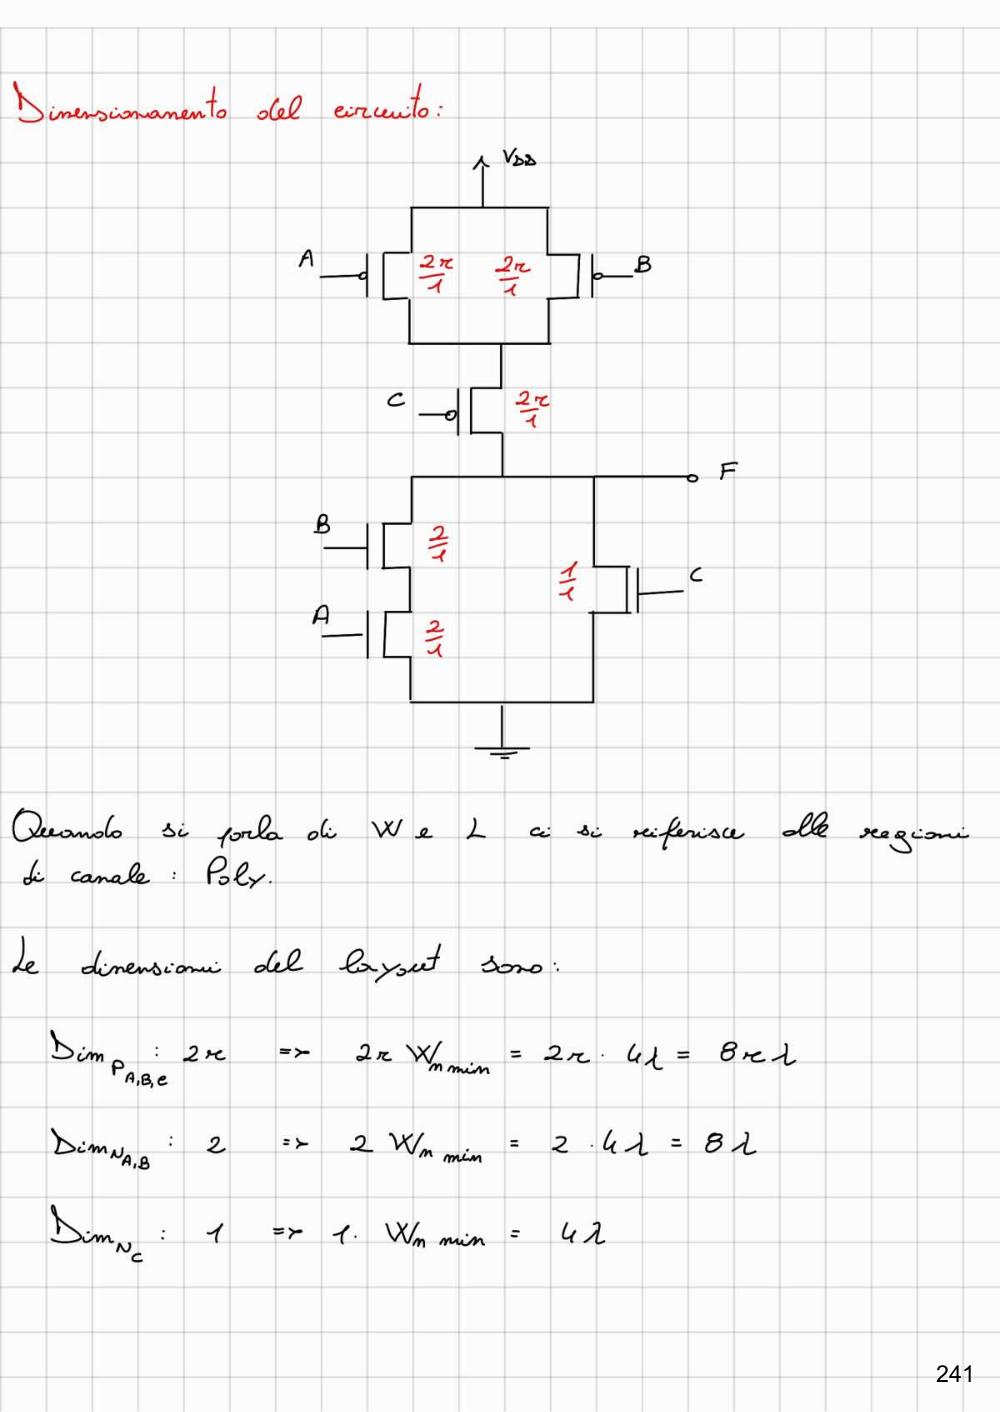 Dimensionamento del circuito:
VDD
A 2r/1 2r/1 B
C 2r/1
F
B 2/1
1/1 C
A 2/1
Quando si parla di W e L ci si riferisce alle regioni
di canale : Poly.
Le dimensioni del layout sono:
Dim P A,B,C : 2r => 2r Wn min = 2r · 4λ = 8rλ
Dim N A,B : 2 => 2 Wn min = 2 · 4λ = 8λ
Dim N C : 1 => 1 · Wn min = 4λ
241